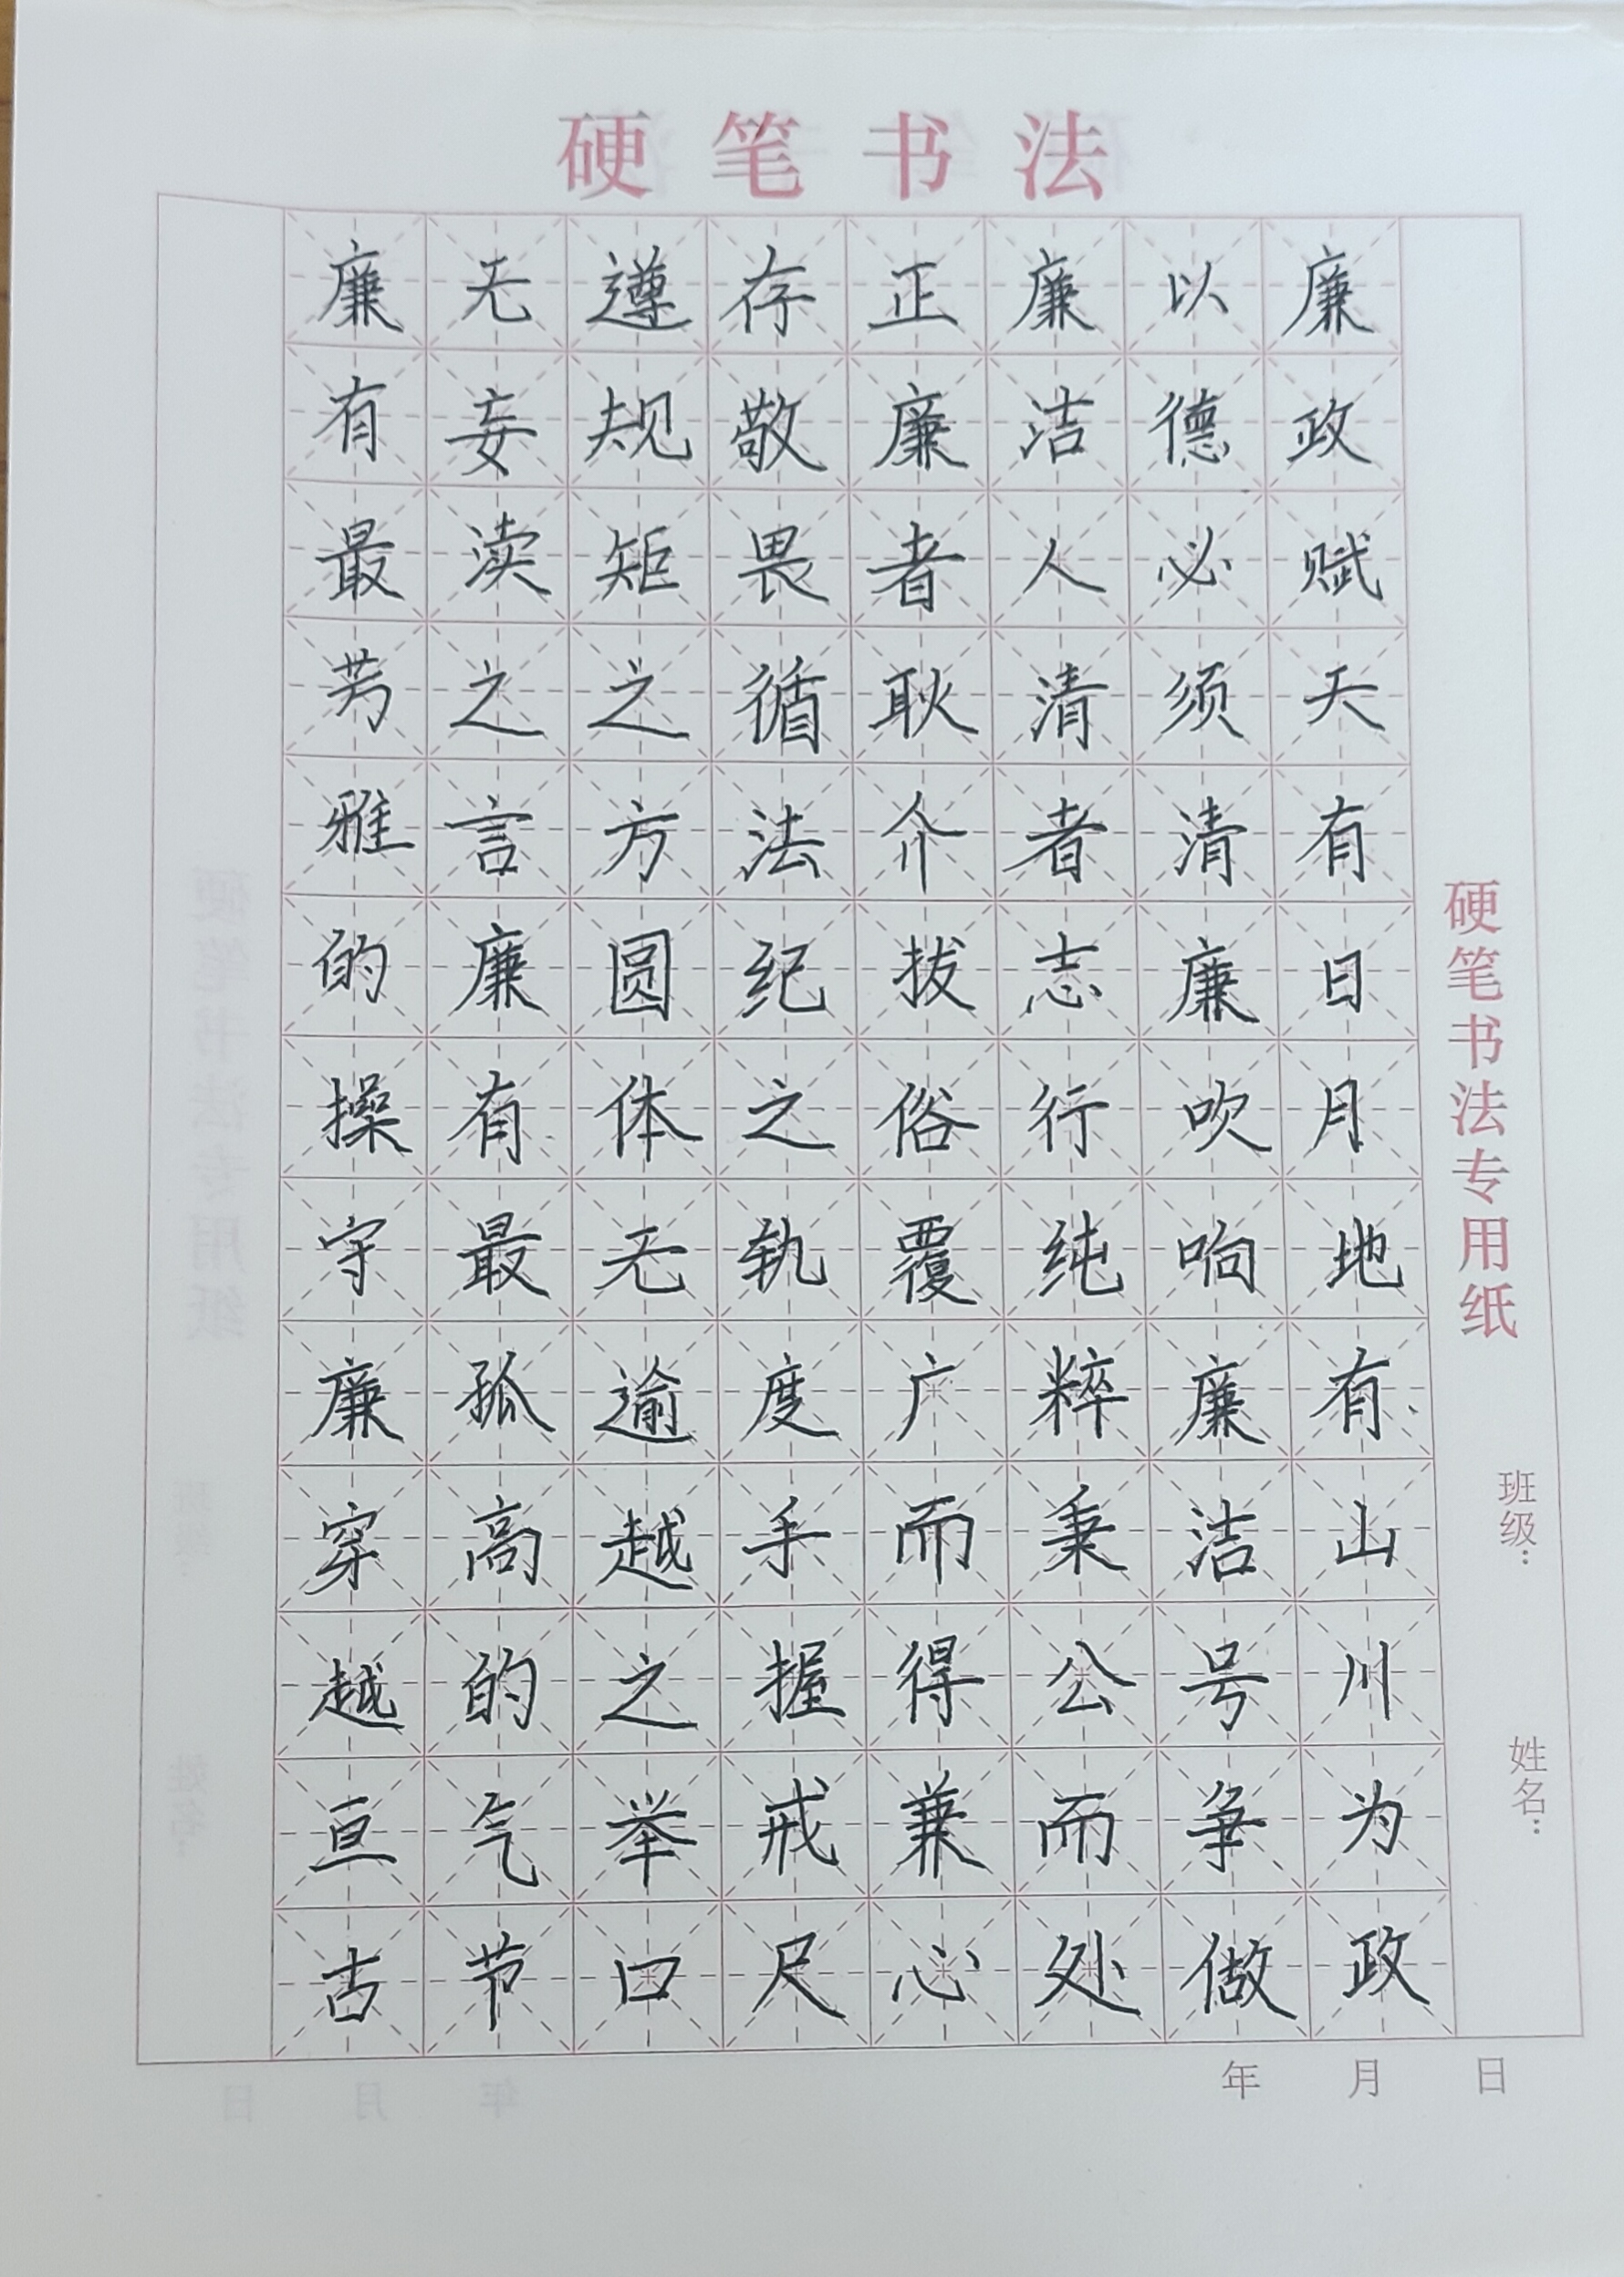 硬笔书法
硬笔书法专用纸
班级：
姓名：
廉政赋天有日月地有山川为政
以德必须清廉吹响廉洁号争做
廉洁人清者志行纯粹秉公而处
正廉者耿介拔俗覆广而得兼心
存敬畏循法纪之轨度手握戒尺
遵规矩之方圆体无逾越之举口
无妄渎之言廉有最孤高的气节
廉有最芳雅的操守廉穿越亘古
年 月 日